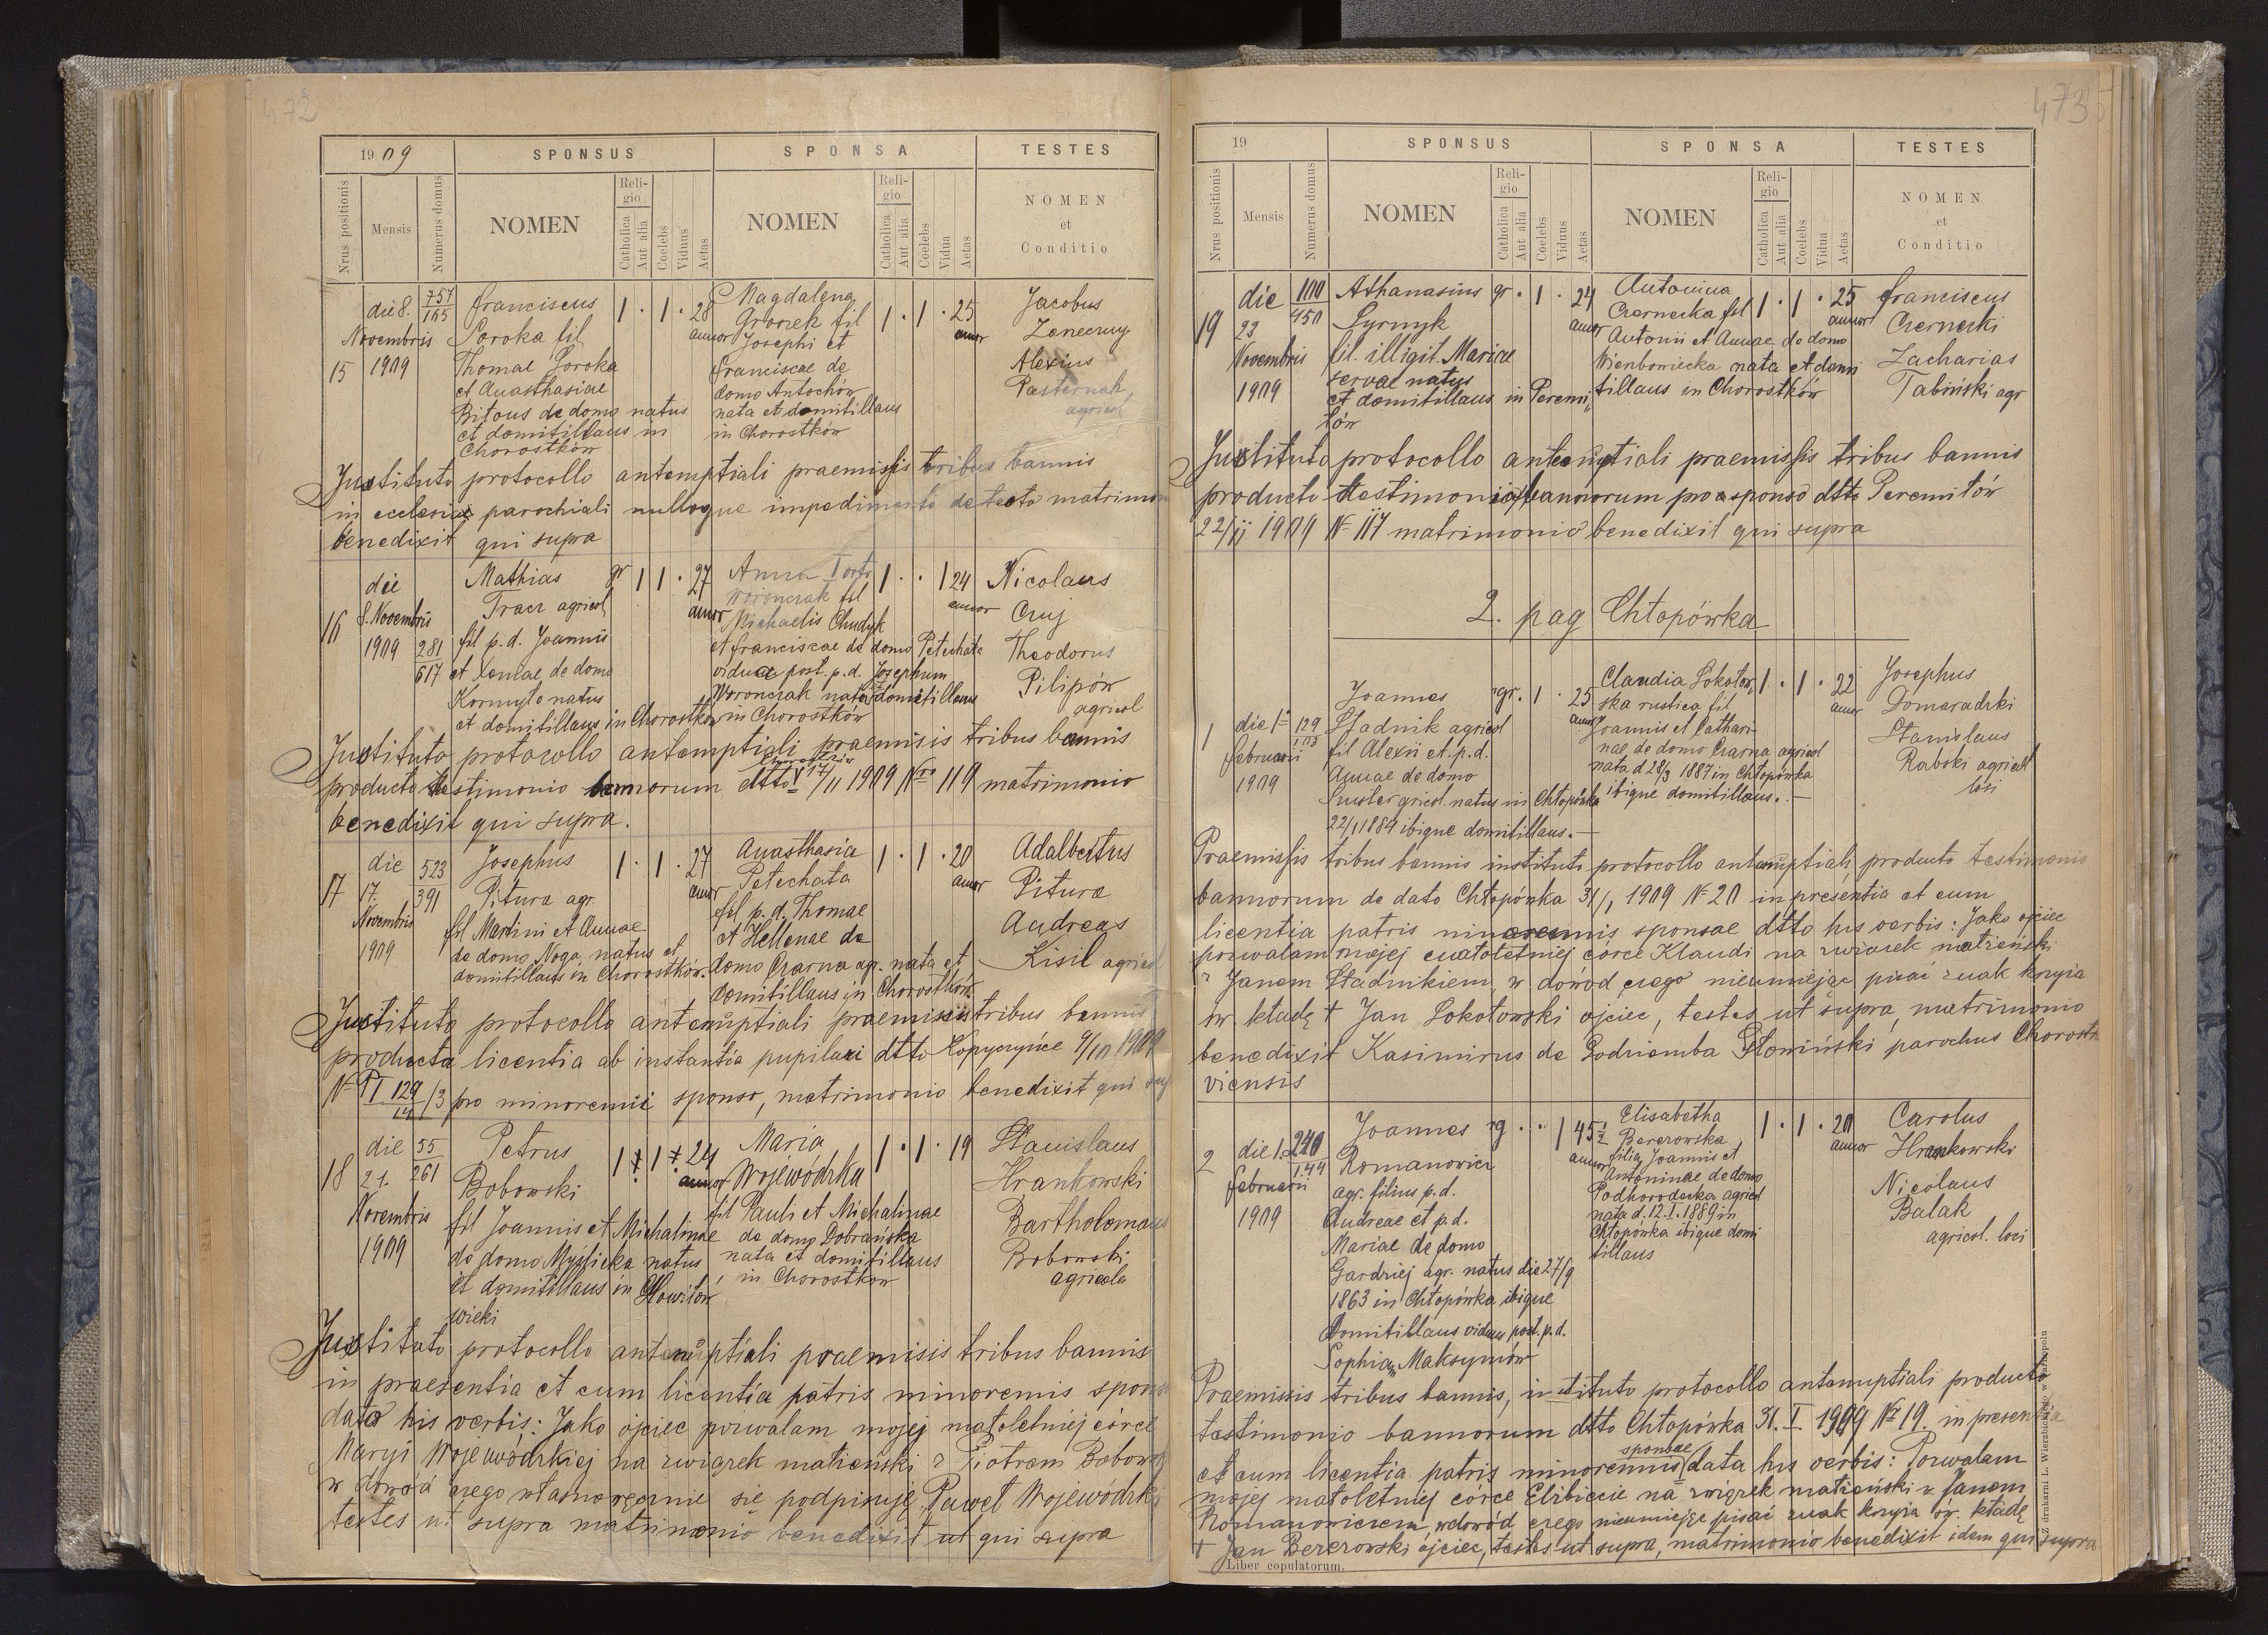 472
1909 SPONSUS SPONSA TESTES
Nrus positionis Mensis Numerus domus NOMEN Religio Catholica Aut alia Coelebs Viduus Aetas NOMEN Religio Catholica Aut alia Coelebs Vidua Aetas NOMEN et Conditio
15
die 8.
Novembris
1909
757
165
Franciscus
Soroka fil
Thomae Soroka
et Anasthasiae
Bitous de domo natus
et domitillans in
Chorostków
1 . 1 . 28
annor
Magdalena
Grossek fil
Josephi et
Franciscae de
domo Antochów
nata et domitillans
in Chorostków
1 . 1 . 25
annor
Jacobus
Zaneczny
Alexius
Pasternak
agricol
Instituto protocollo antenuptiali praemissis tribus bannis
in ecclesia parochiali nulloque impedimento detecto matrimon
benedixit qui supra
16
die
8. Novembris
1909
281
617
Mathias
Tracz agricol
fil p.d. Joannis
et Xeniae de domo
Kormyło natus
et domitillans in Chorostków
gr 1 1 . 27
annor
Anna
Woronczak fil
Michaelis Chudyk
et Franciscae de domo Petechata
vidua post. p.d. Josephum
Woronczak nata domitillans
in Chorostków
1 . . 1 24
annor
Nicolaus
Cruj
Theodorus
Pilipów
agricol
Instituto protocollo antenuptiali praemisis tribus bannis
producto testimonio bannorum dtto Chorostków 17/11 1909 Nro 119 matrimonio
benedixit qui supra.
17
die
17.
Novembris
1909
523
391
Josephus
Pitura agr.
fil Martini et Annae
de domo Noga, natus et
domitillans in Chorostków.
1 . 1 . 27
annor
Anasthasia
Petechata
fil p.d. Thomae
et Hellenae de
domo Czarna agr. nata et
domitillans in Chorostków
1 . 1 . 20
annor
Adalbertus
Pitura
Andreas
Kisil agricol
Instituto protocollo antenuptiali praemisis tribus bannis
producta licentia ab instantia pupilari dtto Kopyczyńce 9/10 1909
N= P I 129/14 /3 pro minorenni sponso, matrimonio benedixit qui sup
18
die
21.
Novembris
1909
55
261
Petrus
Bobowski
fil Joannis et Michalinae
de domo Myślicka natus
et domitillans in Howiłów
wielki
1 . 1 . 24
annor
Maria
Wojewódzka
fil Pauli et Michalinae
de domo Dobrańska
nata et domitillans
in Chorostków
1 . 1 . 19
Stanislaus
Hrankowski
Bartholomaus
Bobowski
agricola
Instituto protocollo antenuptiali praemisis tribus bannis
in praesentia et cum licentia patris minorenis spons
data his verbis: Jako ojciec pozwalam mojej małoletniej córce
Maryi Wojewódzkiej na związek małżeński z Piotrem Bobows
w dowód czego własnoręcznie się podpisuję Paweł Wojewódzki
testes ut supra matrimonio benedixit ut qui supra
473
19 SPONSUS SPONSA TESTES
Nrus positionis Mensis Numerus domus NOMEN Religio Catholica Aut alia Coelebs Viduus Aetas NOMEN Religio Catholica Aut alia Coelebs Vidua Aetas NOMEN et Conditio
19
die
23
Novembris
1909
100
450
Athanasius
Syrnyk
fil. illigit. Mariae
servae natus
et domitillans in Peremi,
łów
gr . 1 . 24
annor
Antonina
Czernecka fil
Antonii et Annae de domo
Wierzbowiecka nata et domi
tillans in Chorostków
1 . 1 . 25
annor
Franciscus
Czernecki
Zacharias
Tabiński agr
Instituto protocollo antenuptiali praemissis tribus bannis
producto testimonio bannorum pro sponso dtto Peremiłów
22/11 1909 N= 117 matrimonio benedixit qui supra
2. pag Chłopówka
1
die 1a
februarii
1909
129
Joannes
Stadnik agricol
fil Alexii et p.d.
Annae de domo
Suster gricol. natus in Chłopówka
22/1 1884 ibique domitillans. —
rgr. 1 . 25
annor
Claudia Sokołow,
ska rustica fil
Joannis et Cathari-
nae de domo Czarna agricol
nata d 28/3 1887 in Chłopówka
ibique domitillans. —
1 . 1 . 22
annor
Josephus
Domaradzki
Stanislaus
Rabski agricol
loci
Praemissis tribus bannis instituto protocollo antenuptiali producto testimonio
bannorum de dato Chłopówka 31/1 1909 N= 20 in presentia et cum
licentia patris minorennis sponsae dtto his verbis: Jako ojciec
pozwalam mojej małoletniej córce Klaudi na związek małżeński
z Janem Stadnikiem, w dowód czego nieumiejąc pisać znak krzyża
św. kładę † Jan Sokołowski ojciec, testes ut supra, matrimonio
benedixit Kasimirus de Godziemba Słomiński parochus Chorostk
viensis
2
die 1.
februarii
1909
240
144
Joannes
Romanowicz
agr. filius p.d.
Andreae et p.d.
Mariae de domo
Gardziej agr. natus die 27/9
1863 in Chłopówka ibique
domitillans viduus post. p.d.
Sophiam Maksymów
rg . . 1 45½
annor
Elisabetha
Berezowska
filia Joannis et
Antoninae de domo
Podhorodecka agricol
nata d. 12.I. 1889 in
Chłopówka ibique domi
tillans
1 . 1 . 20
annor
Carolus
Hrankowski
Nicolaus
Balak
agricol. loci
Praemissis tribus bannis, instituto protocollo antenuptiali producto
testimonio bannorum dtto Chłopówka 31. I. 1909 No 19. in presentia
et cum licentia patris minorennis sponsae data his verbis: Pozwalam
mojej małoletniej córce Elżbiecie na związek małżeński z Janem
Romanowiczem, w dowód czego nieumiejąc pisać znak krzyża św. kładę
† Jan Berezowski ojciec, testes ut supra, matrimonio benedixit idem qui supra
Liber copulatorum.
Z drukarni L. Wierzbickiego w Tarnopolu